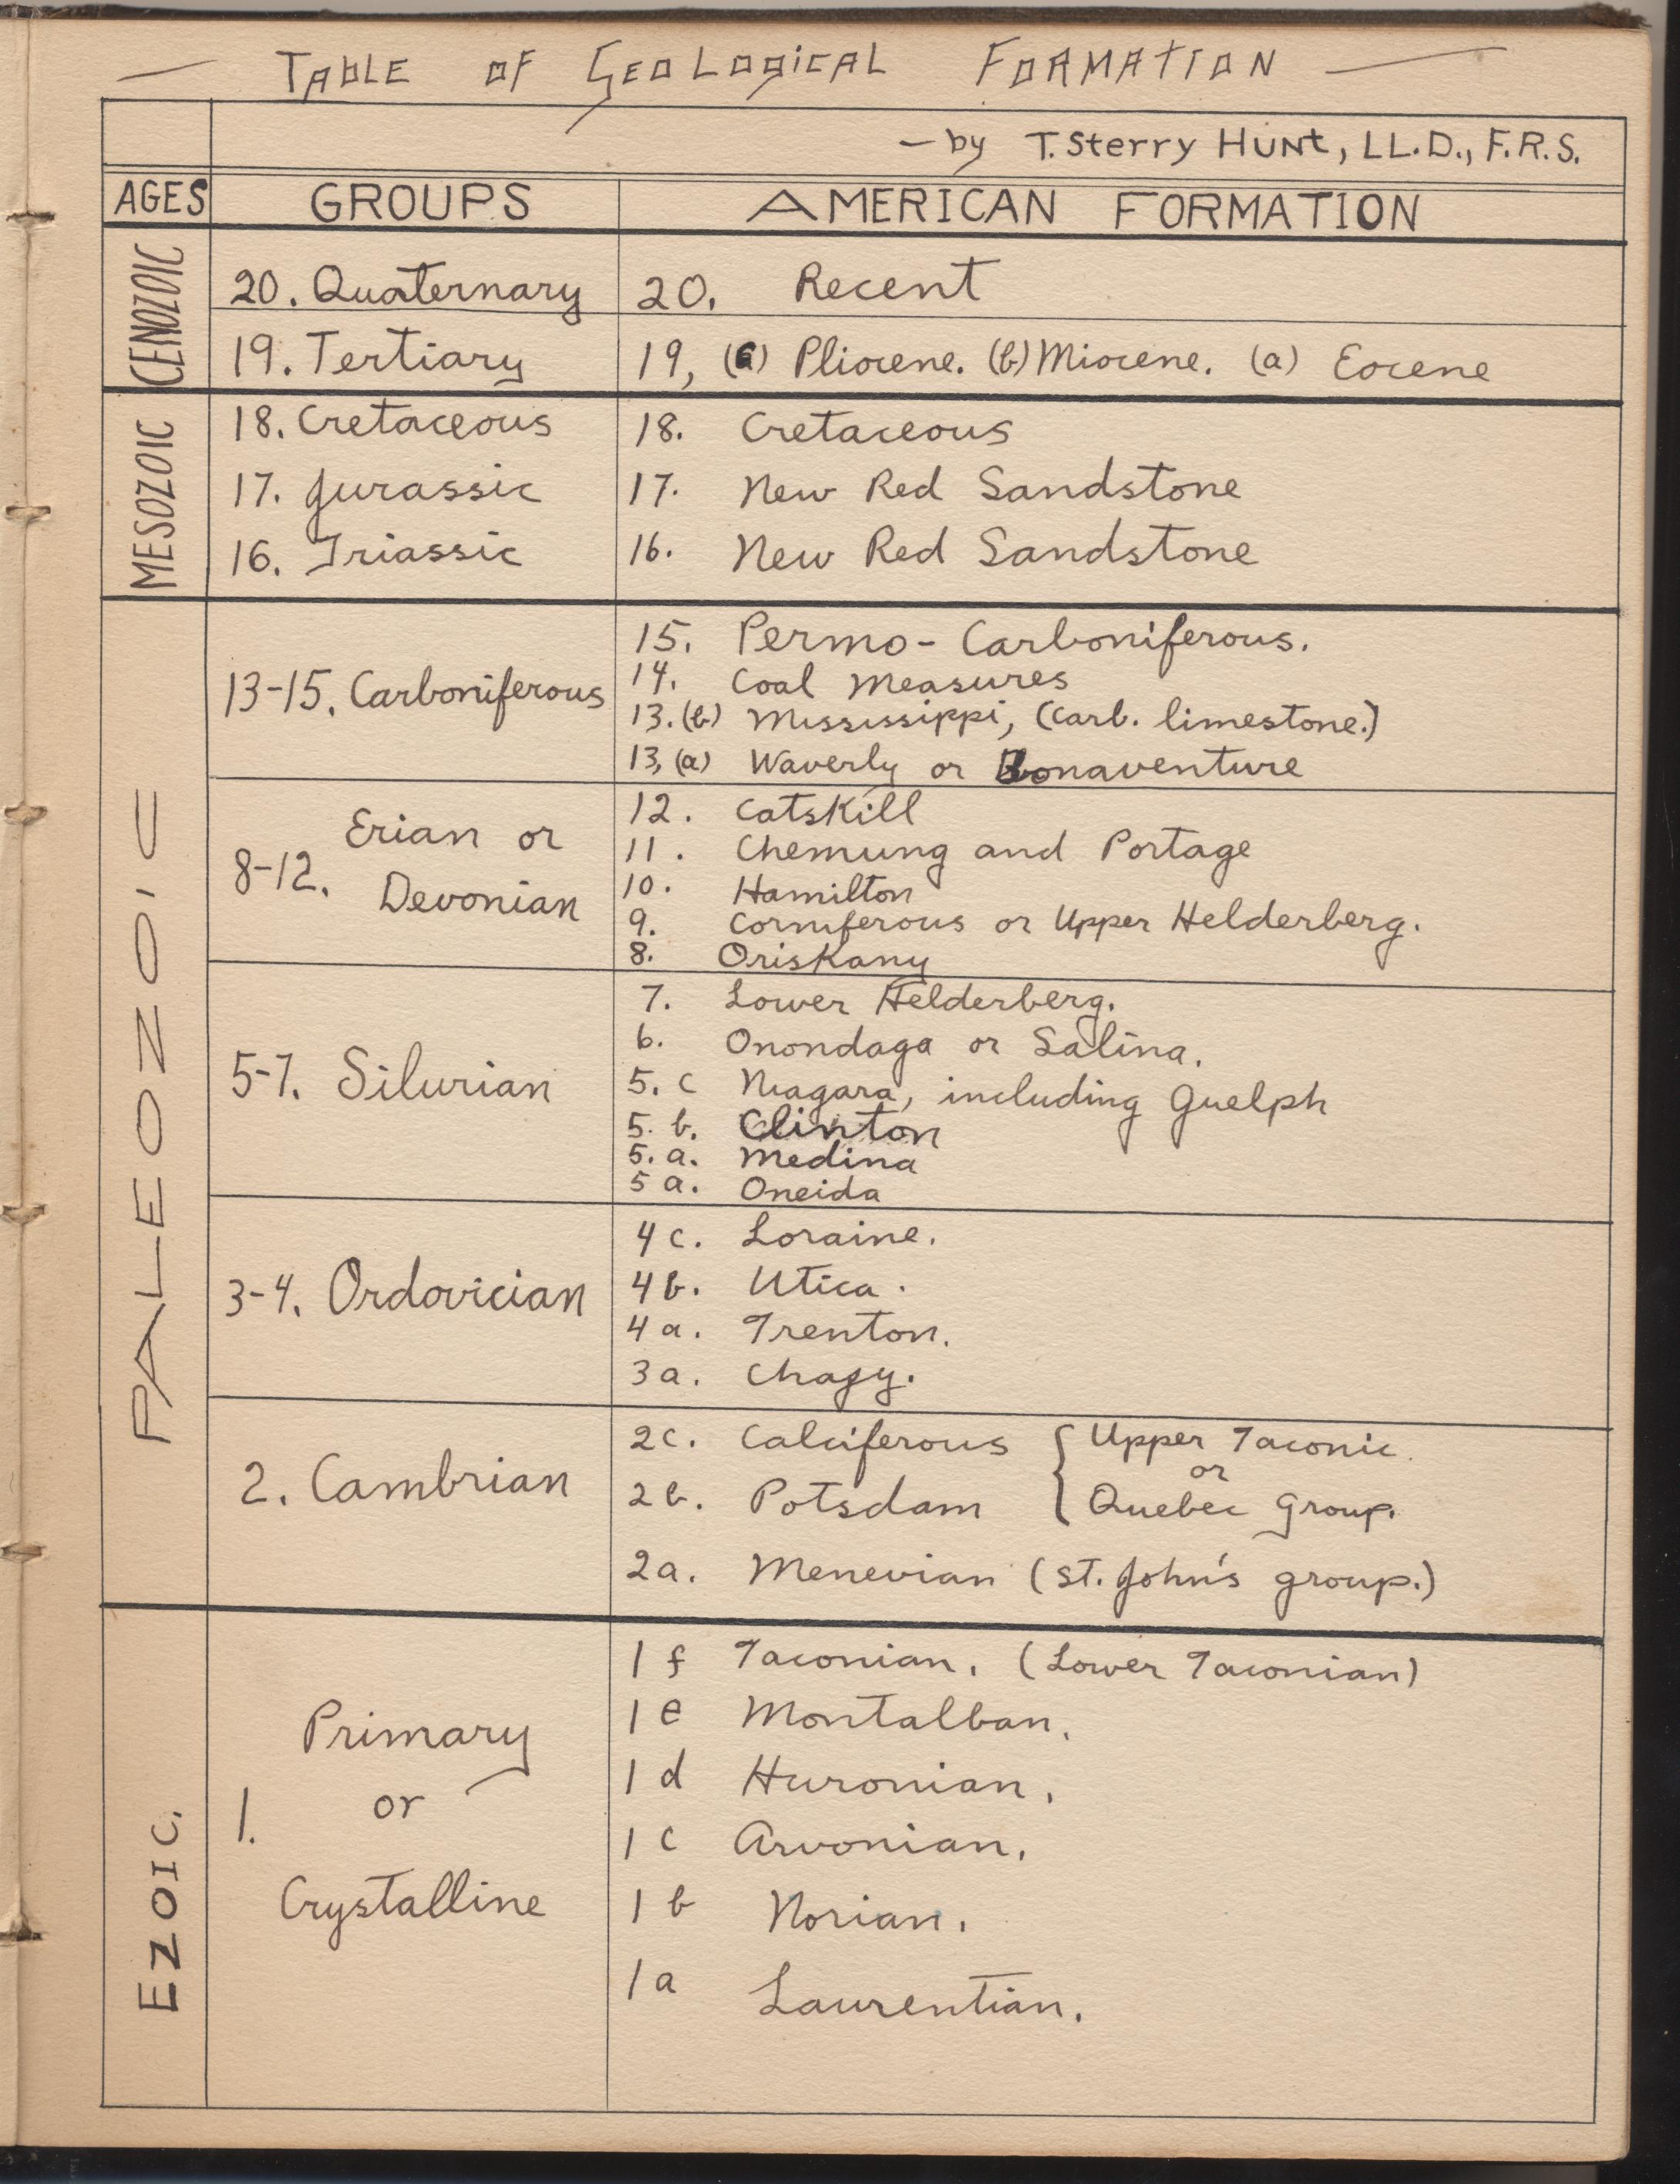 — TABLE OF GEOLOGICAL FORMATION —
— by T. Sterry HUNt, LL.D., F.R.S.
AGES GROUPS AMERICAN FORMATION
CENOZOIC
20. Quaternary 20. Recent
19. Tertiary 19, (c) Pliocene. (b) Miocene. (a) Eocene
MESOZOIC
18. Cretaceous 18. Cretaceous
17. Jurassic 17. New Red Sandstone
16. Triassic 16. New Red Sandstone
PALEOZOIC
13-15. Carboniferous
15. Permo-Carboniferous.
14. Coal Measures
13. (b) Mississippi, (Carb. limestone.)
13, (a) Waverly or Bonaventure
8-12. Erian or
Devonian
12. Catskill
11. Chemung and Portage
10. Hamilton
9. Corniferous or Upper Helderberg.
8. Oriskany
5-7. Silurian
7. Lower Helderberg.
6. Onondaga or Salina.
5. c Niagara, including Guelph
5. b. Clinton
5. a. Medina
5 a. Oneida
3-4. Ordovician
4 c. Loraine.
4 b. Utica.
4 a. Trenton.
3 a. Chazy.
2. Cambrian
2c. Calciferous { Upper Taconic.
or
2b. Potsdam Quebec Group.
2a. Menevian (St. John's group.)
EZOIC.
1. Primary
or
Crystalline
1 f Taconian. (Lower Taconian)
1 e Montalban.
1 d Huronian.
1 c Arvonian.
1 b Norian.
1 a Laurentian.